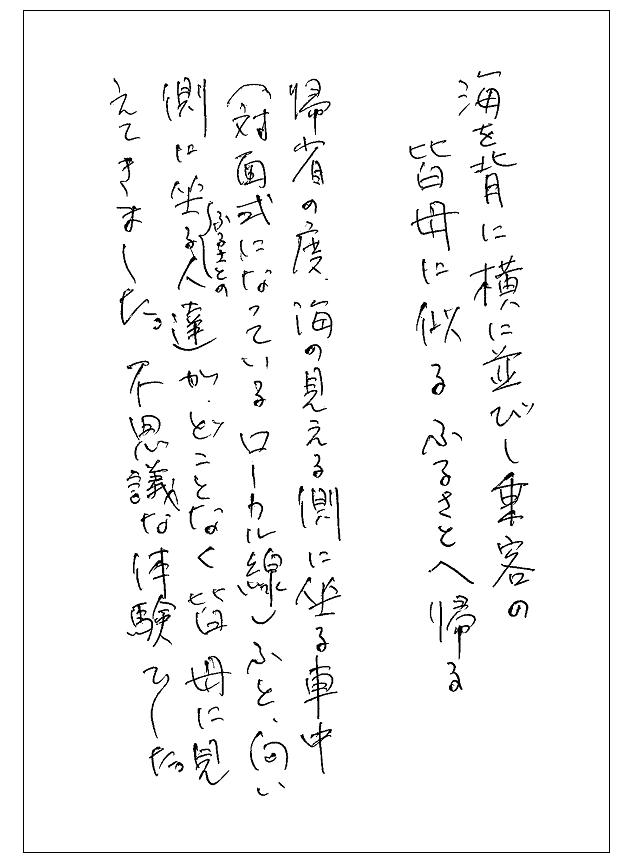 海を背に横に並びし乗客の
皆母に似るふるさとへ帰る
帰省の度、海の見える側に坐る車中
（対面式になっているローカル線）ふと、向い
側に坐る
ふるさとの
人達が、どことなく皆母に見
えてきました。不思議な体験でした。